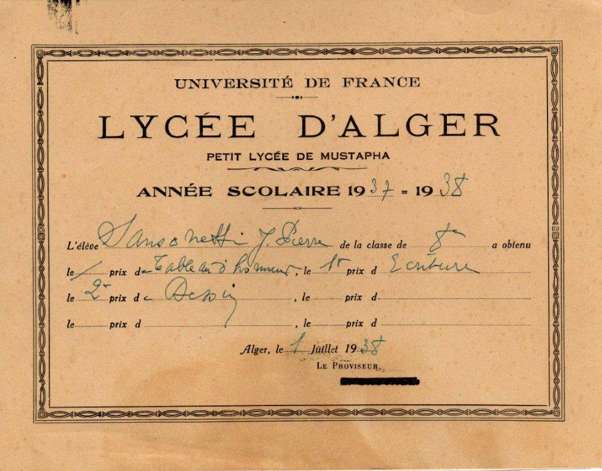 UNIVERSITÉ DE FRANCE
LYCÉE D'ALGER
PETIT LYCÉE DE MUSTAPHA
ANNÉE SCOLAIRE 1937 = 1938
L'élève Sansonetti J. Pierre de la classe de 8e a obtenu
le / prix de Tableau d'honneur, le 1er prix d Ecriture
le 2e prix de Dessin, le prix d
le prix d , le prix d
Alger, le 1 Juillet 1938
LE PROVISEUR,